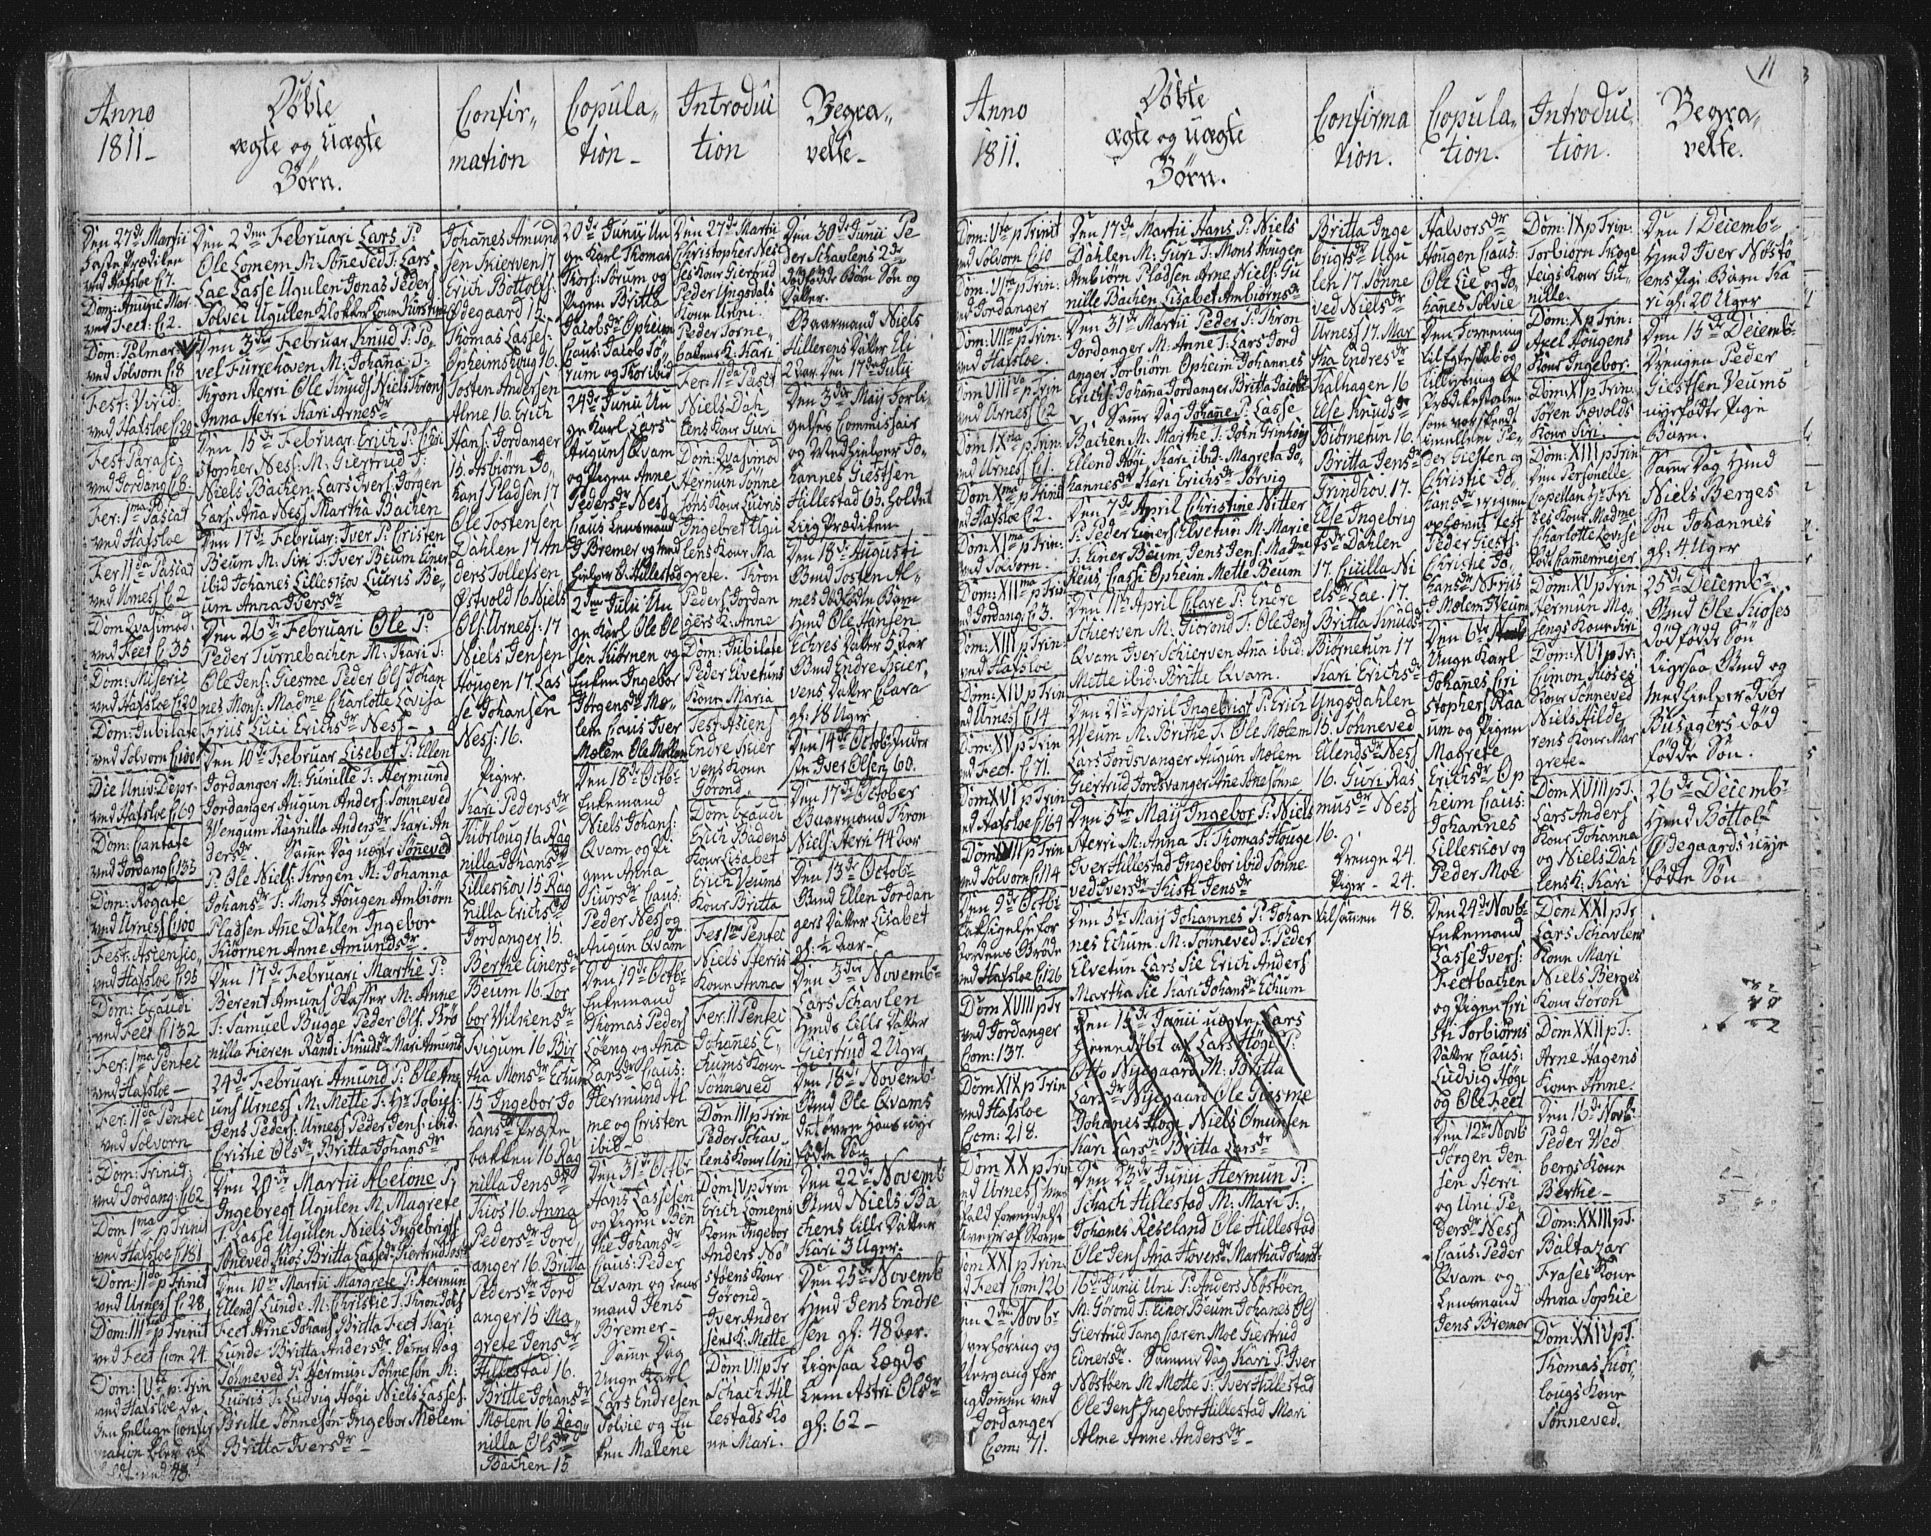 Anno
1811_
Døbte
ægte og Uægte
Børn.
Confir-
mation
Copula-
tion_
Introduc
tion
Begra-
velse_
Den 27de Martii
Faste Prædiken
ved Hafsloe C. 7.
Dom: Annunc: Mar.
ved Feet: C. 2.
Dom: Palmar:
ved Solvorn C. 8
Fest: Virid:
ved Hafsloe C. 29
Fest Parasc:
ved Jordang C. 8
Fer: 1ma Pascat
ved Hafsloe
Fer 11da Pascat
ved Urnes C. 2
Dom Qvasimod.
ved Feet C. 35
Dom: Miseric
ved Hafsloe C. 20
Dom: Jubilate
ved Solvorn C. 100
Die Univ: Depr-
ved Hafsloe C. 69
Dom: Cantate
ved Jordang C. 135
Dom: Rogate
ved Urnes C. 100
Fest: Ascensio.
ved Hafsloe C. 95
Dom: Exaudi
ved Feet C. 132
Fer: 1ma Pentec
ved Hafsloe_
Fer: 11da Pentec
ved Solvorn
Dom: Trinid.
ved Jordang: C. 62
Dom 1ma p Trinit
ved Hafsloe C. 181
Dom: 11da p Trinit
ved Urnes C. 28
Dom: 111tia p Trinit
ved Feet Com 24.
Dom: IVta p: Trin
ved Hafsloe Da
den hellige Confir
mation blev af
Den 2den Februari Lars P:
Ole Lomem M: Sønneved T: Lars
Lae Lasse Ugulen Jonas Peders
Solvei Ugulen Klokker Kone Kirsten
Den 3die Februar Knud P: Po,
vel Furrehaven M: Johana T:
Thron Herri Ole Knuds Niels Throns
Anna Herri Kari Arnesdr
Den 15de Februar: Erich P: Chri
stopher Ness: M: Giertrud T:
Niels Bachen Lars Ivers Jorgen
Lars: Aña Ness Martha Bachen
Den 17de Februar: Iver P: Cristen
Beum M: Siri T: Iver Beum Einer
ibid Johanes Lilleskov Lucris Be,
um Anna Iversdr
Den 26de Februari Ole P:
Peder Turnebachen M: Kari T:
Ole Jens: Giesme Peder Ols Johan
nes Mons: Madme Charlotte Lovisa
Friis Luci Erichsdr Ness_
Den 10de Februar Lisebet P: Ellen
Jordanger M: Gunille T: Hermund
Jordanger Augun Anders: Sønneved
Wengum Ragnilla Andersdr Kari An
dersdr. Samme Dag uægte Sønneved
P: Ole Niels: Krogen M: Johanna
Johansdr T: Mons Hougen Ambiörn
Pladsen Ane Dahlen Ingebor
Kiörnen Anne Amundsdr_
Den 17de Februari Marthe P:
Berent Amuns Hafser M: Anne
T: Samuel Bugge Peder Ols: Bro
nilla Fieren Randi Knudsdr Mari Amund
24de Februari Amund P: Ole Am
uns Urness M: Mette T: Hr Tobies:
Jens Peders: Urness Peder Jens: ibid.
Cristie Olsdr Britta Johansdr
Den 20de Martii Abelone P:
Ingebregt Ugulen M: Magrete
T: Lasse Ugulen Niels Ingebrigts:
Sønneved Kios Britta Lassedr Giertrud
Den 10de Martii Margrete P: Hermun
Ellends Lunde M: Christie T: Thron Jahs
Feet Arne Johans Britta Feet Kari
Lunde Britta Andersdr Samme Dag
Sønneved P: Hermun Sønneson M:
Lucris T: Ludvig Høgi Niels Lasses:
Britte Sønnesøn Ingebor Mælem
Britta Iversdr_
Johanes Amund
sen Skierven 17
Erich Bottols:
Ødegaard 15
Thomas Lasses:
Opheimshoug 16.
Tosten Andersen
Alme 16. Erich
Hans: Jordanger
15. Asbiörn Jo,
hans Pladsen 17
Ole Tostensen
Dahlen 17 An
ders Tollefsen
Østvold 16 Niels
Ols: Urness: 17
Niels Jensen
Hougen 17. Las
se Johansen
Ness: 16.
Piger.
Kari Pedersdr
Kiörloug 16. Rag
nilla Johansdr
Lilleskov 15 Rag
nilla Erichsdr
Jordanger 15.
Berthe Einersdr
Beum 16. Tor
bor Wilkensdr
Svigum 16. Bir
tha Monsdr Echum
15 Ingebor Jo
hansdr Præste
bakken 16 Rag
nilla Jensdr
Kios 16. Anna
Pedersdr Jord
anger 16 Britta
Pedersdr Jord
anger 15 Ma,
grete Jensdr
Hillestad 16.
Britte Johansdr
Mælem 16 Rag
nilla Olsdr
Bachen 15
20de Junii Un
ge Karl Thomas
Thors: Sorum og
Pigen Britta
Jacobsdr Opheim
Caus: Jacob Sö,
rum og Thor ibid
24de Junii Un
ge Karl Lars
Auguns Qvam
og Pigen Anne
Pedersdr Ness
Caus Lensmand
J Bremer og med
hielper O: Hillestad
2den Julii Un
ge Karl Ole Ol
sen Kiörnen og
Enken Ingebor
Jörgensdr Mæ,
lem Caus Iver
Mælem Ole Mollem
Den 18de Octbr
Enkemand
Niels Johans:
Qvam og Pi
gen Anna
Siursdr Caus:
Peder Ness og
Augun Qvam
Den 19de Octbr
Enkemand
Thomas Peders
Löeng og Aña
Larsdr Caus:
Hermund Al
me og Cristen
ibid_
Den 31te Octbr
Hans Lassesen
og Pigen Ben
the Johansdr
Caus: Peder
Qvam og Lens
mand Jens
Bremer_
Samme Dag
Unge Karl
Lars Endresen
Solvie og En
ken Malene
Den 27de Martii
Christopher Nes
ses Kone Giertrud
Peder Ungsdals
Kone Unni.
Peder Torne,
bakens K: Kari
Fer: 11da Pasct
Niels Dah
lens Kone Guri
Dom: Qvasimod
Hermun Sønne
søns Kone Lucris
Ingebret Ugu
lens Kone Ma
grete. Thron
Peders: Jordan
gers K: Anne
Dom: Jubilate
Peder Elvetuns
Kone Maria
Fest Asiens
Endre Skier
vens Kone
Görond_
Dom Exaudi
Erich Badens
Kone Lisabet
Erich Veums
Kone Britta
Fer 1ma Pentec
Niels Sterris
Kone Anna
Fer: 11 Pentec
Johanes E,
chums Kone
Sønneved
Dom III p Trin
Peder Schav
lens Kone Uni
Dom IV p Trin
Erich Lomems
Kone Ingebor
Anders Nö
støens Kone
Görond_
Iver Ander
sens K: Mette
Dom VII p Tr
Schach Hil
lestads Ko
ne Mari.
Den 30de Junii Pe
der Schavlens 2de
dødfødde Børn Søn og
Datter.
Baarmand Niels
Hillerens Datter Eli
2 Aar Den 17de Julii
Den 3die May Forli,
gelses Commissair
og Medhielper Jo,
hannes Giestsen
Hillestad 63. holdet
Liig Prædiken
Den 18de Augusti
Bmd Tosten Al
mes dødfødte Barn
Hmd Ole Hansen
Echres Datter 5 Aar
Bmd Endre Skier,
vens Datter Clara
gl: 18 Uger
Den 14de Octob: Under
ste Iver Olsen 60.
Den 17de October
Baarmand Thron
Niels: Herri 44 Aar
Den 13de Octob:
Bmd Ellen Jordan
gers Datter Lisabet
gl: ½ Aar._
Den 3die Novemb:
Lars Schavlen
Hmds lille Datter
Giertrud 2 Uger
Den 18de Novemb:
Bmd Ole Qvams
fødte Søn
Den 22de Novemb
Bmd Niels Ba,
chens lille Datter
Kari 3 Uger._
Den 25de Novemb
Hmd Jens Endre
sen gl: 48 Aar.
Ligesaa Lægds
Lem Astri Olsdr
gl: 62_
11
Anno
1811.
Døbte
ægte og uægte
Børn.
Confirma
tion.
Copula-
tion.
Introduc-
tion.
Begra
velse.
Dom: Vta p Trinit
ved Solvorn C. 10
Dom: VIta p Trin:
ved Jordanger
Dom: VIIma p Trin:
ved Hafsloe.
Dom VIIIva p Trin
ved Urnes C. 2
Dom IXna p Trin:
ved Urnes C. 1.
Dom Xma p Trinit
ved Hafsloe C. 2.
Dom XIma p Trin:
ved Solvorn.
Dom: XIIma p Trin
ved Jordang: C. 3.
Dom XIII p Trin
ved Hafsloe
Dom: XIV p Trin
ved Urnes C. 14
Dom: XV p Trin
ved Feet. C. 71.
Dom XVI p Trin
ved Hafsloe C. 164
Dom XVII p Trin
ved Solvorn C. 114
Den 9de Octbr
Taksigelse for
Jordens Grøde
ved Hafsloe C. 126
Dom XVIII p Tr
ved Jordanger
Com: 137.
Dom XIX p Trin
ved Hafsloe
Com: 218.
Dom XX p Trin
ved Urness men
Uveyr af Storm
Dom XXI p Trin:
ved Feet Com 126
Den 2den Novbr
Overhøring og
Overgang for
Ungdommen ved
Jordanger
Com: 71.
Den 17de Martii Hans P: Niels
Dahlen M: Guri T: Mons Hougen
Ambiörn Pladsen Arne Niels: Gu
nille Bachen Lisabet Ambiörnsdr
Den 31de Martii Peder P: Thron
Jordanger M: Anne T: Lars Jord
anger Torbiörn Opheim Johannes
Erichs: Johana Jordanger Britta Jacobsdr
Samme Dag Johane P: Lasse
Bachen M: Marthe T: John Grinhoug
Ellend Høgi Kari ibid: Magreta Jo,
hannesdr Kari Erichsdr Sørvig
Den 7de April Christine Nitter
P: Peder Einers: Elvetun M: Marie
T: Einer Beum Jens Jens: Madme
Keus, Lassi Opheim Mette Beum
Den 11te April Clare P: Endre
Schierven M: Giørond T: Ole Jens
Qvam Iver Schierven Ana ibid:
Mette ibid: Britte Qvam.
Den 21de April Ingebrigt P: Erich
Veum M: Brithe T: Ole Mælem
Lars Jordsvanger Augun Mælem
Giertrud Jordsvanger Ane Sønesøne
Den 5te Maij Ingebor P: Niels
Herri M: Anna T: Thomas Houge
Iver Hillestad Ingebor ibid Sønne
ved Iversdr Kisti Jensdr
Den 5te Maij Johannes P: Johan
nes Echum. M: Sønneved T: Peder
Elvetun Lars Sie Erich Anders
Martha Sie Kari Johansdr Echum
Den 15de Junii uægte Lars
Hiemedøbt af Lars Høgi P:
Otto Nyegaard M: Britta
Larsdr Nyegaard Ole Giesme
Johanes Høgi Niels Omunsen
Kari Larsdr Britta Larsdr
Den 23de Junii Hermun P:
Schach Hillestad M: Mari T:
Johanes Reseland Ole Hillestad
Ole Jens: Aña Hoversdr Martha Johansdr
16de Junii Uni P: Anders Nostöen
M: Görond T: Einer Beum Johanes Ols
Giertrud Tang Caren Moe Giertrud
Einersdr. Samme Dag Kari P: Iver
Nöstöen M: Mette T: Iver Hillestad
Ole Jens Ingebor Hillestad Mari
Alme Anne Andersdr_
Britta Inge
brigtsdr Ugu
len 17 Sønne
ved Nielsdr
Urness 17. Mar
tha Endresdr
Kalhagen 16
Else Knudsdr
Biörnetun 16.
Britta Jensdr
Grindhov. 17.
Else Ingebrig
tsdr Dahlen
17. Gunilla Ni
elsdr Lae. 17.
Britta Knudsdr
Biörnetun 17
Kari Erichsdr
Ungsdahlen
15. Sønneved
Ellendsdr Ness
16. Guri Ras
musdr Ness
16.
Drenge 24.
Piger_ 24.
tilsamen 48.
Halvorsdr
Hougen Caus:
Ole Lie og Jo,
hanes Solvie
Den Forening
til Egteskab og
tillysning af
Prædikestolen
som var skeedt
imellem Pe,
der Giestsen og
Christie Jo,
hansdr er igien
ophævet test
Peder Giests:
Christie Jo,
hansdr N Friis
J Molem N Veum
Den 6te
Unge Karl
Johanes Cri
stophers Raa
um og Pigen
Magrete
Erichsdr Op
heim Caus:
Johannes
Lilleskov og
Peder Moe
Den 24de Novbr
Enkemand
Lasse Ivers:
Feetbachen
og Pigen Cri
sti Torbiörns
Datter Caus:
Ludvig Høgi
og Ole Feet
Den 12te Novb
Jörgen Jen
sen Sterri
og Uni Pe,
dersdr Ness
Caus: Peder
Qvam og
Lensmand
Jens Bremer
Dom: IX p Trin:
Torbiörn Skoge
teigs Kone Gu
nille.
Dom: X p Trin:
Axel Hougens
Kone Ingebor.
Dom: XI p Trin:
Sören Fævolds
Kone Siri.
Dom: XIII p Trin
Den Personelle
Capellan Hr Fri
ises Kone Madme
Charlotte Lovise
Født Cammermejer
Dom: XV p Trin
Hermun Mo,
sengs Kone Siri
Dom: XVI p Tr.
Cimon Kioses
Kone Sønneved
Niels Hilde
rens Kone Mar
grete.
Dom XVIII p T:
Lars Anders
Kone Johanna
og Niels Dah
lens K: Kari
Dom XXI p Tr
Lars Schavlens
Kone Mari
Niels Berges
Kone Göron
Dom XXII p T:
Arne Hagens
Kone Anne.
Den 16de Novb:
Peder Wed
bergs Kone
Berthe_
Dom: XXIII p T.
Baltazar
Frases Kone
Anna Sophie
Dom: XXIV p T.
Thomas Kiör,
lougs Kone
Sønneved.
Den 1 Decemb:
Hmd Iver Nøstö
ens Pige Barn Ka
ri gl: 20 Uger
Den 15de Decemb:
Drengen Peder
Giestsen Veums
nyefødte Pige
Barn.
Samme Dag Hmd
Niels Berges
Søn Johannes
gl: 4 Uger
25de Decemb:
Bmd Ole Kioses
dødfødde Søn
Ligesaa Bmd og
Medhielper Iver
Busagers Død
fødde Søn.
26de Decemb:
Hmd Bottol
Ødegaards nye
fødte Søn